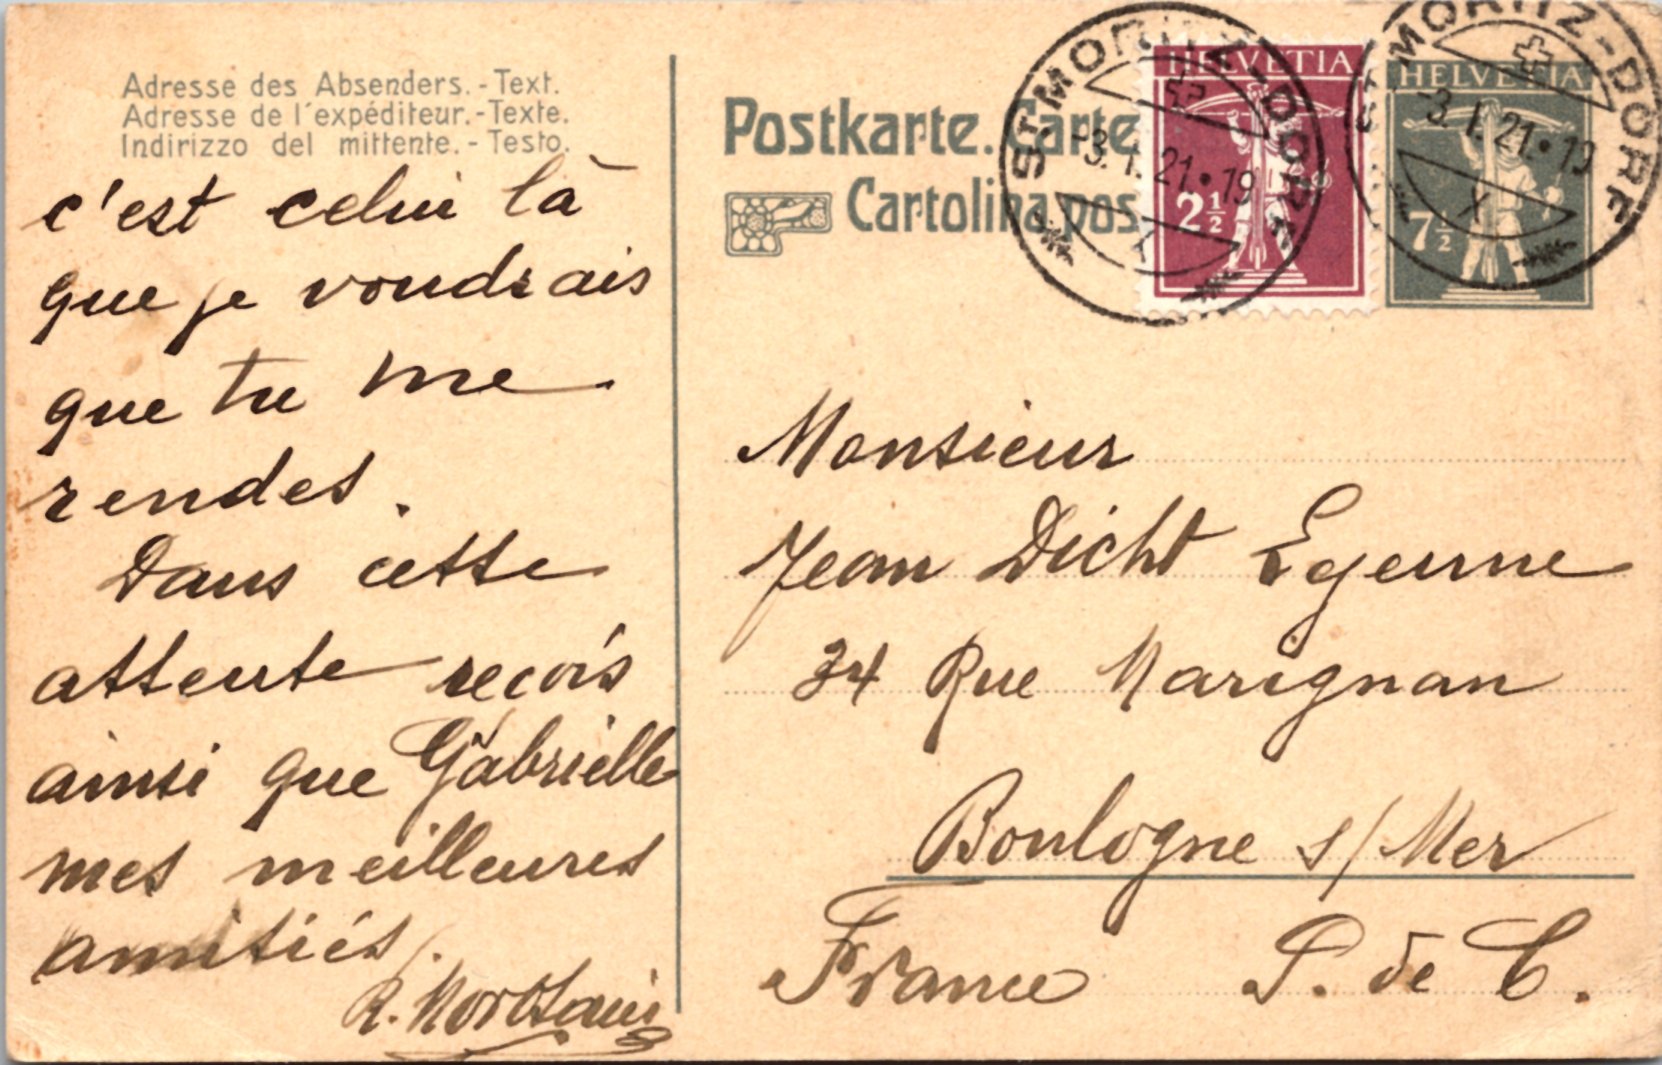 Adresse des Absenders.-Text.
Adresse de l'expéditeur.-Texte.
Indirizzo del mittente.-Testo.
c'est celui là
que je voudrais
que tu me
rendes.
Dans cette
attente reçois
ainsi que Gabrielle
mes meilleures
amitiés.
R.
Postkarte. Carte
Cartolina pos
HELVETIA
2½
HELVETIA
7½
ST MORITZ-DORF
-3.I.21•19
X
ST MORITZ-DORF
-3.I.21•19
X
Monsieur
Jean Dicht
34 Rue Marignan
Boulogne s/Mer
France P. de C.